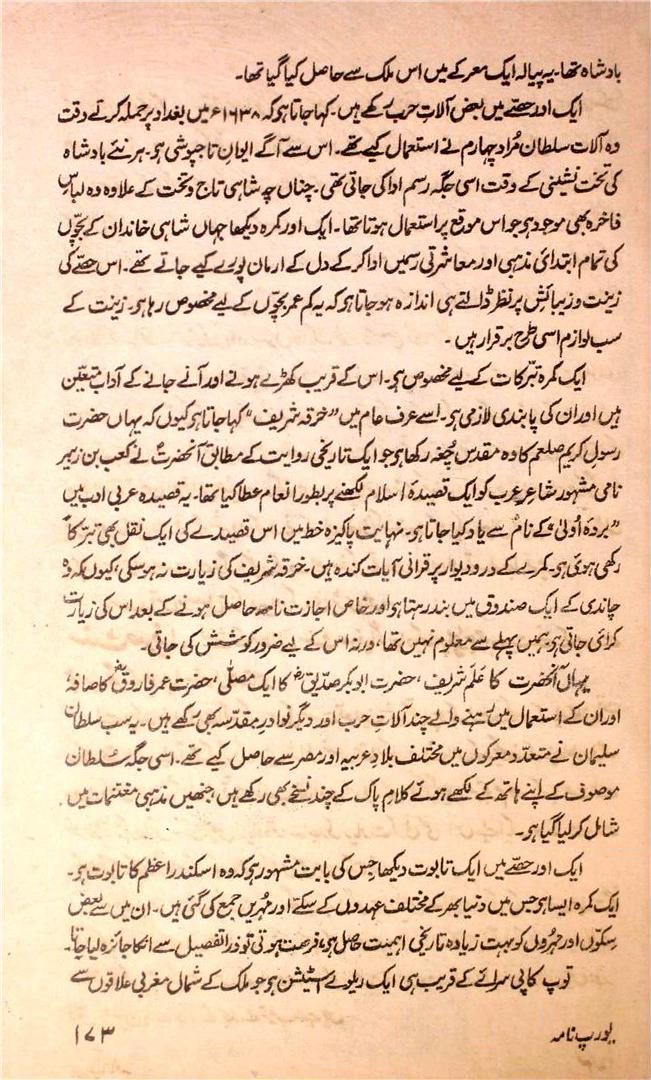 بادشاہ تھا۔ یہ پیالہ ایک معرکے میں اس ملک سے حاصل کیا گیا تھا۔
ایک اور حصّے میں بعض آلاتِ حرب رکھے ہیں۔ کہا جاتا ہو کہ ۱۶۳۸ء میں بغداد پر حملہ کرتے وقت
وہ آلات سلطان مُراد چہارم نے استعمال کیے تھے۔ اس سے آگے ایوانِ تاجپوشی ہو۔ ہر نئے بادشاہ
کی تخت نشینی کے وقت اسی جگہ رسم ادا کی جاتی تھی۔ چناں چہ شاہی تاج و تخت کے علاوہ وہ لباسِ
فاخرہ بھی موجود ہو جو اس موقع پر استعمال ہوتا تھا۔ ایک اور کمرہ دیکھا جہاں شاہی خاندان کے بچّوں
کی تمام ابتدائی مذہبی اور معاشرتی رسمیں ادا کر کے دل کے ارمان پورے کیے جاتے تھے۔ اس حصّے کی
زینت و زیبائش پر نظر ڈالتے ہی اندازہ ہو جاتا ہو کہ یہ کم عمر بچّوں کے لیے مخصوص رہا ہو۔ زینت کے
سب لوازم اسی طرح برقرار ہیں۔
ایک کمرہ تبرّکات کے لیے مخصوص ہو۔ اس کے قریب کھڑے ہونے اور آنے جانے کے آداب متعیّن
ہیں اور ان کی پابندی لازمی ہو۔ اسے عرفِ عام میں "خرقہ شریف" کہا جاتا ہو کیوں کہ یہاں حضرت
رسولِ کریم صلعم کا وہ مقدس چُغہ رکھا ہو جو ایک تاریخی روایت کے مطابق آنحضرتؐ نے کعب بن زہیر
نامی مشہور شاعرِ عرب کو ایک قصیدۂ اسلام لکھنے پر بطور انعام عطا کیا تھا۔ یہ قصیدہ عربی ادب میں
"بردۂ اُولیٰ" کے نام سے یاد کیا جاتا ہو۔ نہایت پاکیزہ خط میں اس قصیدے کی ایک نقل بھی تبرّکاً
رکھی ہوئی ہو۔ کمرے کے در و دیوار پر قرآنی آیات کندہ ہیں۔ خرقہ شریف کی زیارت نہ ہو سکی، کیوں کہ وہ
چاندی کے ایک صندوق میں بند رہتا ہو اور خاص اجازت نامہ حاصل ہونے کے بعد اس کی زیارت
کرائی جاتی ہو۔ ہمیں پہلے سے معلوم نہیں تھا، ورنہ اس کے لیے ضرور کوشش کی جاتی۔
یہاں آنحضرت کا عَلَم شریف، حضرت ابوبکر صدّیقؓ کا ایک مصلّٰی، حضرت عمر فاروقؓ کا صافہ
اور ان کے استعمال میں رہنے والے چند آلاتِ حرب اور دیگر نوادرِ مقدّسہ بھی رکھے ہیں۔ یہ سب سلطان
سلیمان نے متعدّد معرکوں میں مختلف بلادِ عربیہ اور مصر سے حاصل کیے تھے۔ اسی جگہ سُلطان
موصوف کے اپنے ہاتھ کے لکھے ہوئے کلامِ پاک کے چند نسخے بھی رکھے ہیں، جنھیں مذہبی مغتنمات میں
شامل کر لیا گیا ہو۔
ایک اور حصّے میں ایک تابوت دیکھا جس کی بابت مشہور ہو کہ وہ اسکندر اعظم کا تابوت ہو۔
ایک کمرہ ایسا ہو جس میں دنیا بھر کے مختلف عہدوں کے سکّے اور مُہریں جمع کی گئی ہیں۔ ان میں سے بعض
سکّوں اور مہروں کو بہت زیادہ تاریخی اہمیت حاصل ہو، فرصت ہوتی تو ذرا تفصیل سے انکا جائزہ لیا جاتا۔
توپ کاپی سرائے کے قریب ہی ایک ریلوے اسٹیشن ہو جو ملک کے شمال مغربی علاقوں سے
یورپ نامہ
۱۷۳